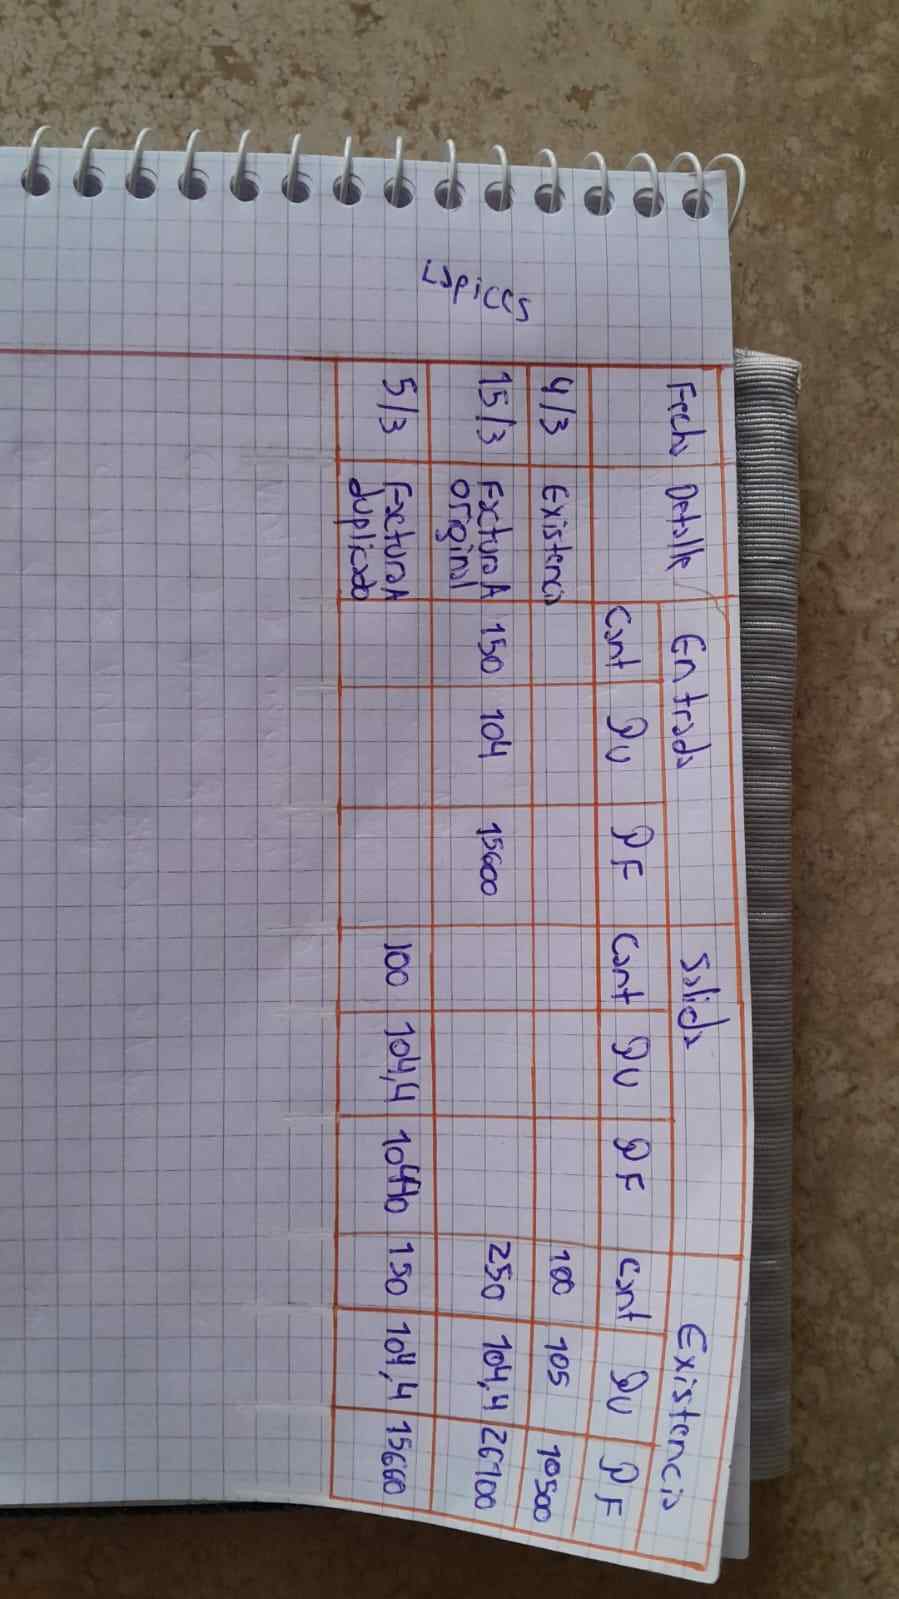 Lapices
Fecha Detalle Entrada Salida Existencia
Cant PU PF Cant PU PF Cant PU PF
4/3 Existencia 100 105 10500
15/3 Factura A original 150 104 15600 250 104,4 26100
5/3 Factura A duplicado 100 104,4 10440 150 104,4 15660